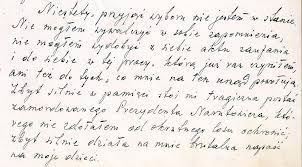 Niestety, przyjąć wyboru nie jestem w stanie.
Nie mogłem wywalczyć w sobie zapomnienia,
nie mogłem wydobyć z siebie aktu zaufania
i do siebie w tej pracy, którą już raz czyniłem
ani też do tych, co mnie na ten urząd powołują.
Zbyt silnie w pamięci stoi mi tragiczna postać
zamordowanego Prezydenta Narutowicza, któ-
rego nie zdołałem od okrutnego losu ochronić;
zbyt silnie działa na mnie brutalna napaść
na moje dzieci.